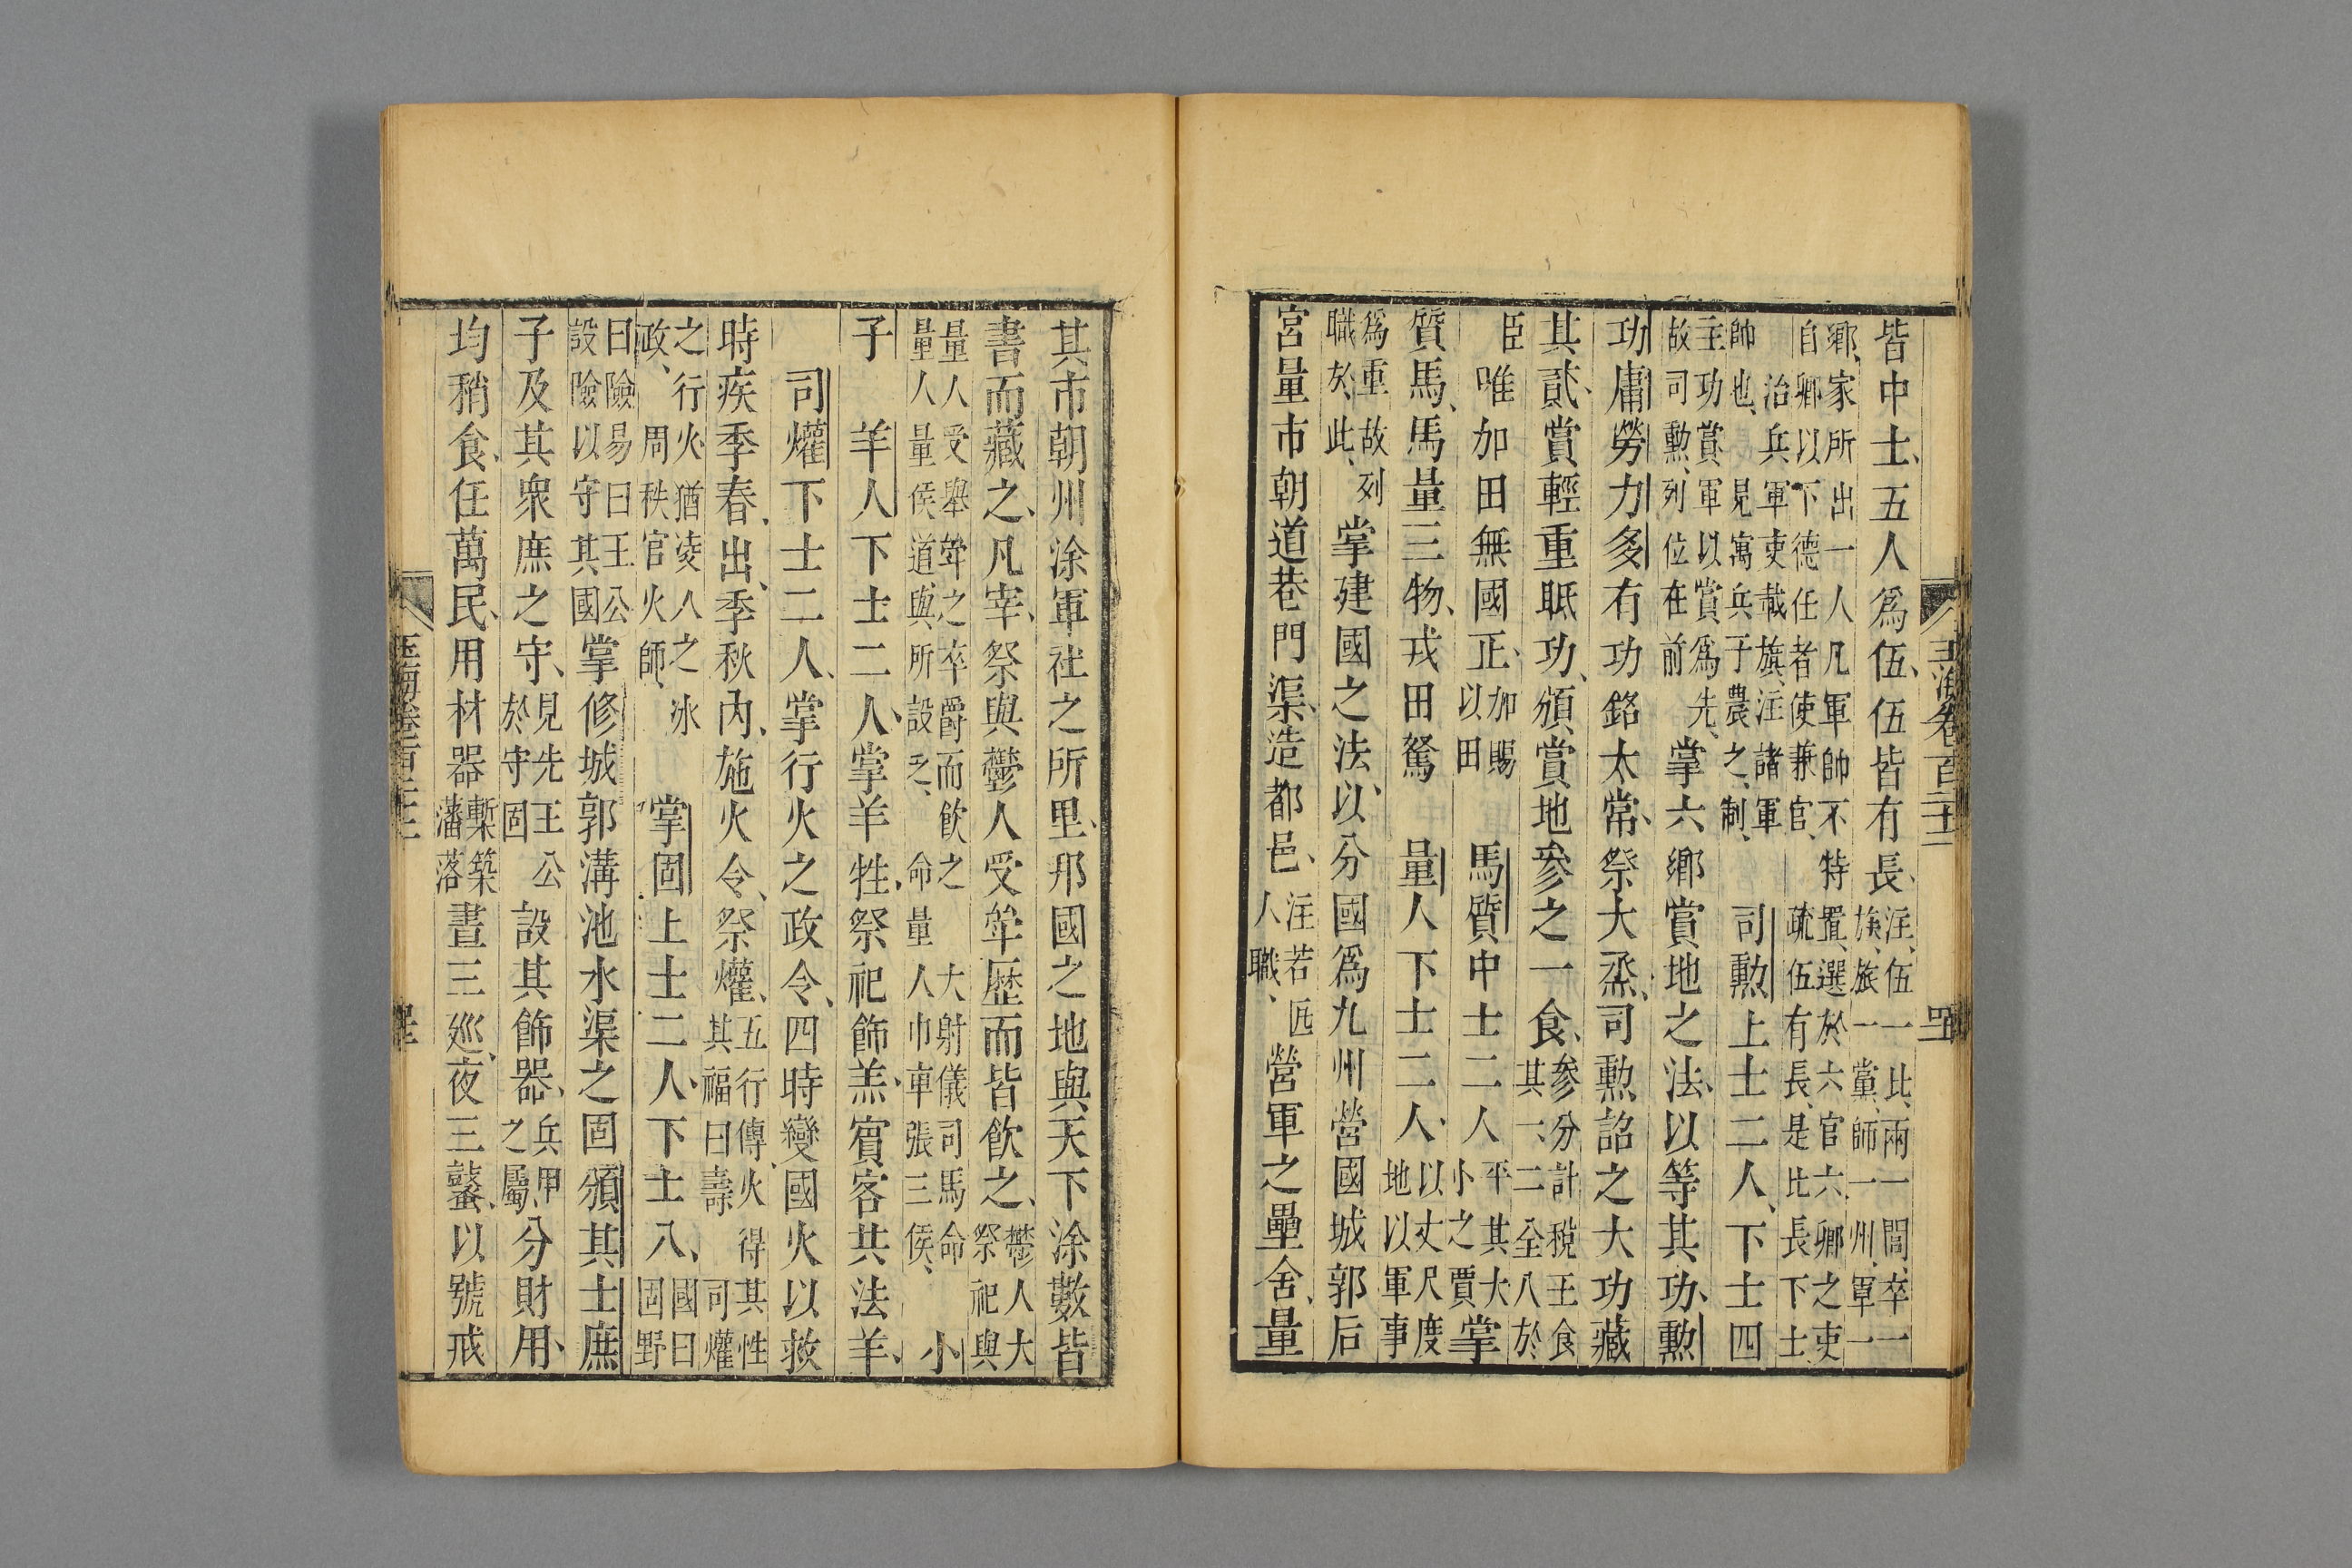 玉海卷百二十二
皆中士、五人爲伍、伍皆有長、注、伍一比、兩一閭、卒一族、旅一黨、師一州、軍一
鄉、家所出一人凡軍帥不特置、選於六官六卿之吏自卿以下德任者使兼官、疏伍有長、是比長下士
治兵軍吏載旗、注諸軍帥也、見寓兵子農之制、司勲上士二人、下士四
主功賞軍以賞爲先、故司勲、列位在前掌六鄉賞地之法、以等其功、勲
功庸勞力多有功銘太常、祭大烝、司勲詔之大功藏
其貳、賞輕重眡功、頒賞地參之一食、參分計稅王食其一、二全入於
臣唯加田無國正、加賜以田馬質中士二人平其大小之賈掌
質馬、馬量三物、戎田駑量人下士二人、以丈尺度地以軍事
爲重故列職於此、掌建國之法、以分國爲九州營國城郭后
宮量市朝道巷門渠、造都邑、注若匠人職、營軍之壘舍、量
其市朝州涂軍社之所里、邦國之地與天下涂數皆
書而藏之、凡宰、祭與鬱人受斝歷而皆飲之、鬱人大祭祀與
量人受舉斝之卒爵而飲之量人量侯道與所設乏、大射儀司馬命命量人巾車張三侯、小
子羊人下士二人、掌羊牲、祭祀飾羔、賓客共法羊、
司爟下士二人、掌行火之政令、四時變國火以救
時疾季春、出、季秋內、施火令、祭爟、五行傳、火得其性其福曰壽司爟
之行火猶凌人之冰政、周秩官火師、掌固上士二人、下士八人、國曰固野
曰險易曰王公設險以守其國掌修城郭溝池水渠之固頒其士庶
子及其衆庶之守、見先王公於守固設其飾器、兵甲之屬、分財用、
均稍食、任萬民、用材器塹築藩落晝三巡、夜三鼜、以號戒